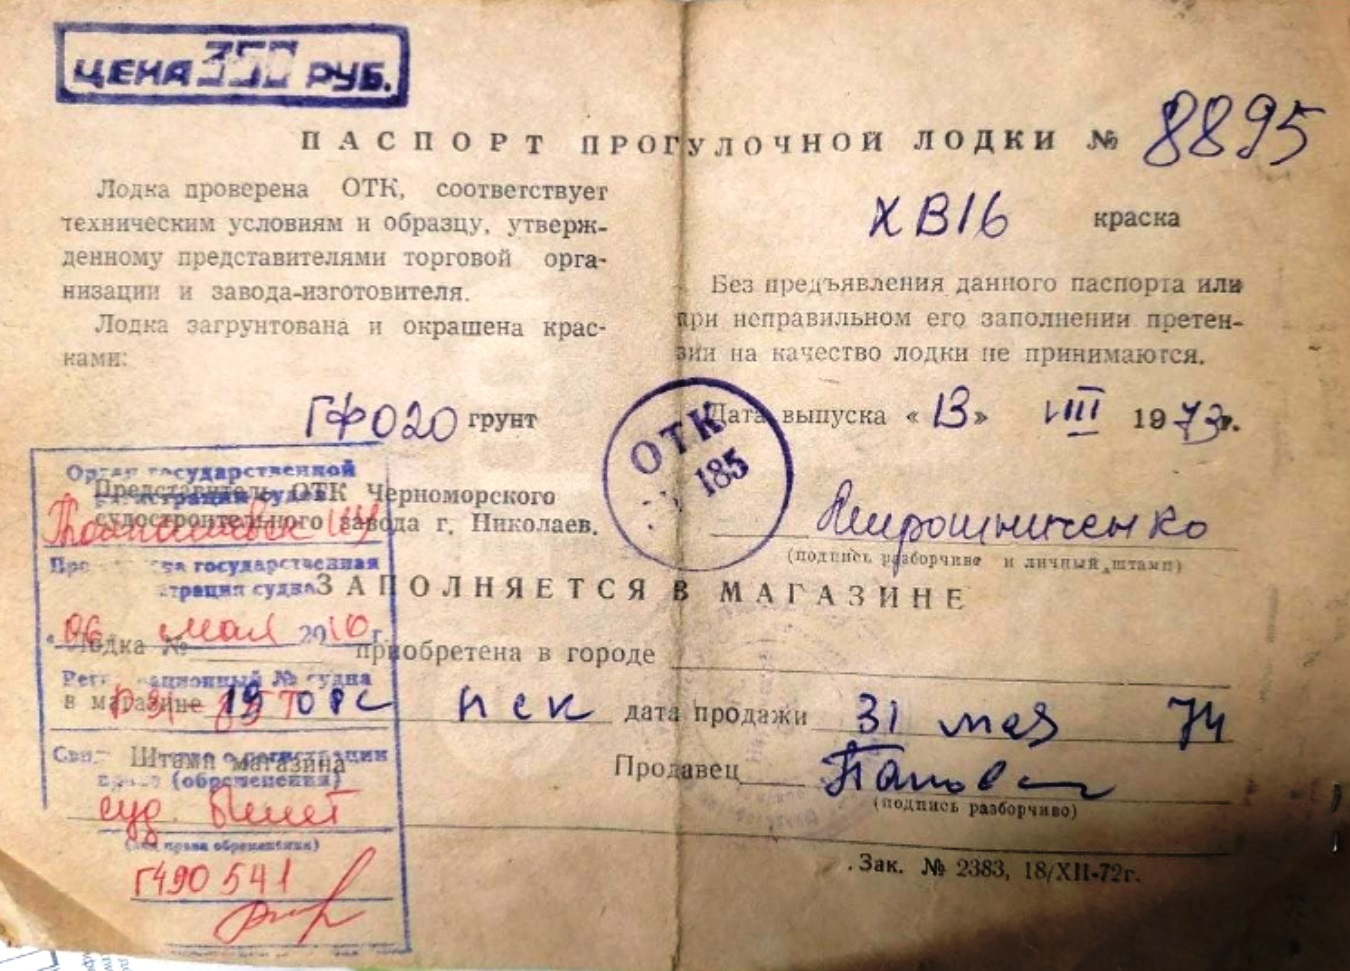 ЦЕНА 350 РУБ.
ПАСПОРТ ПРОГУЛОЧНОЙ ЛОДКИ № 8895
Лодка проверена ОТК, соответствует
техническим условиям и образцу, утверж-
денному представителями торговой орга-
низации и завода-изготовителя.
Лодка загрунтована и окрашена крас-
ками:
ГФ020 грунт
Представитель ОТК Черноморского
судостроительного завода г. Николаев.
ХВ16 краска
Без предъявления данного паспорта или
при неправильном его заполнении претен-
зии на качество лодки не принимаются.
Дата выпуска « 13 » VIII 1973г.
ОТК
185
Мирошниченко
(подпись разборчиво и личный штамп)
ЗАПОЛНЯЕТСЯ В МАГАЗИНЕ
Лодка № приобретена в городе
в магазине дата продажи 31 мая 74
Штамп магазина
Продавец
(подпись разборчиво)
Зак. № 2383, 18/XII-72г.
Орган государственной
регистрации судов
государственная
судна
06 мая 2010 г.
Регистрационный № судна
о регистрации
права (обременения)
суд билет
(вид права обременения)
Г490541